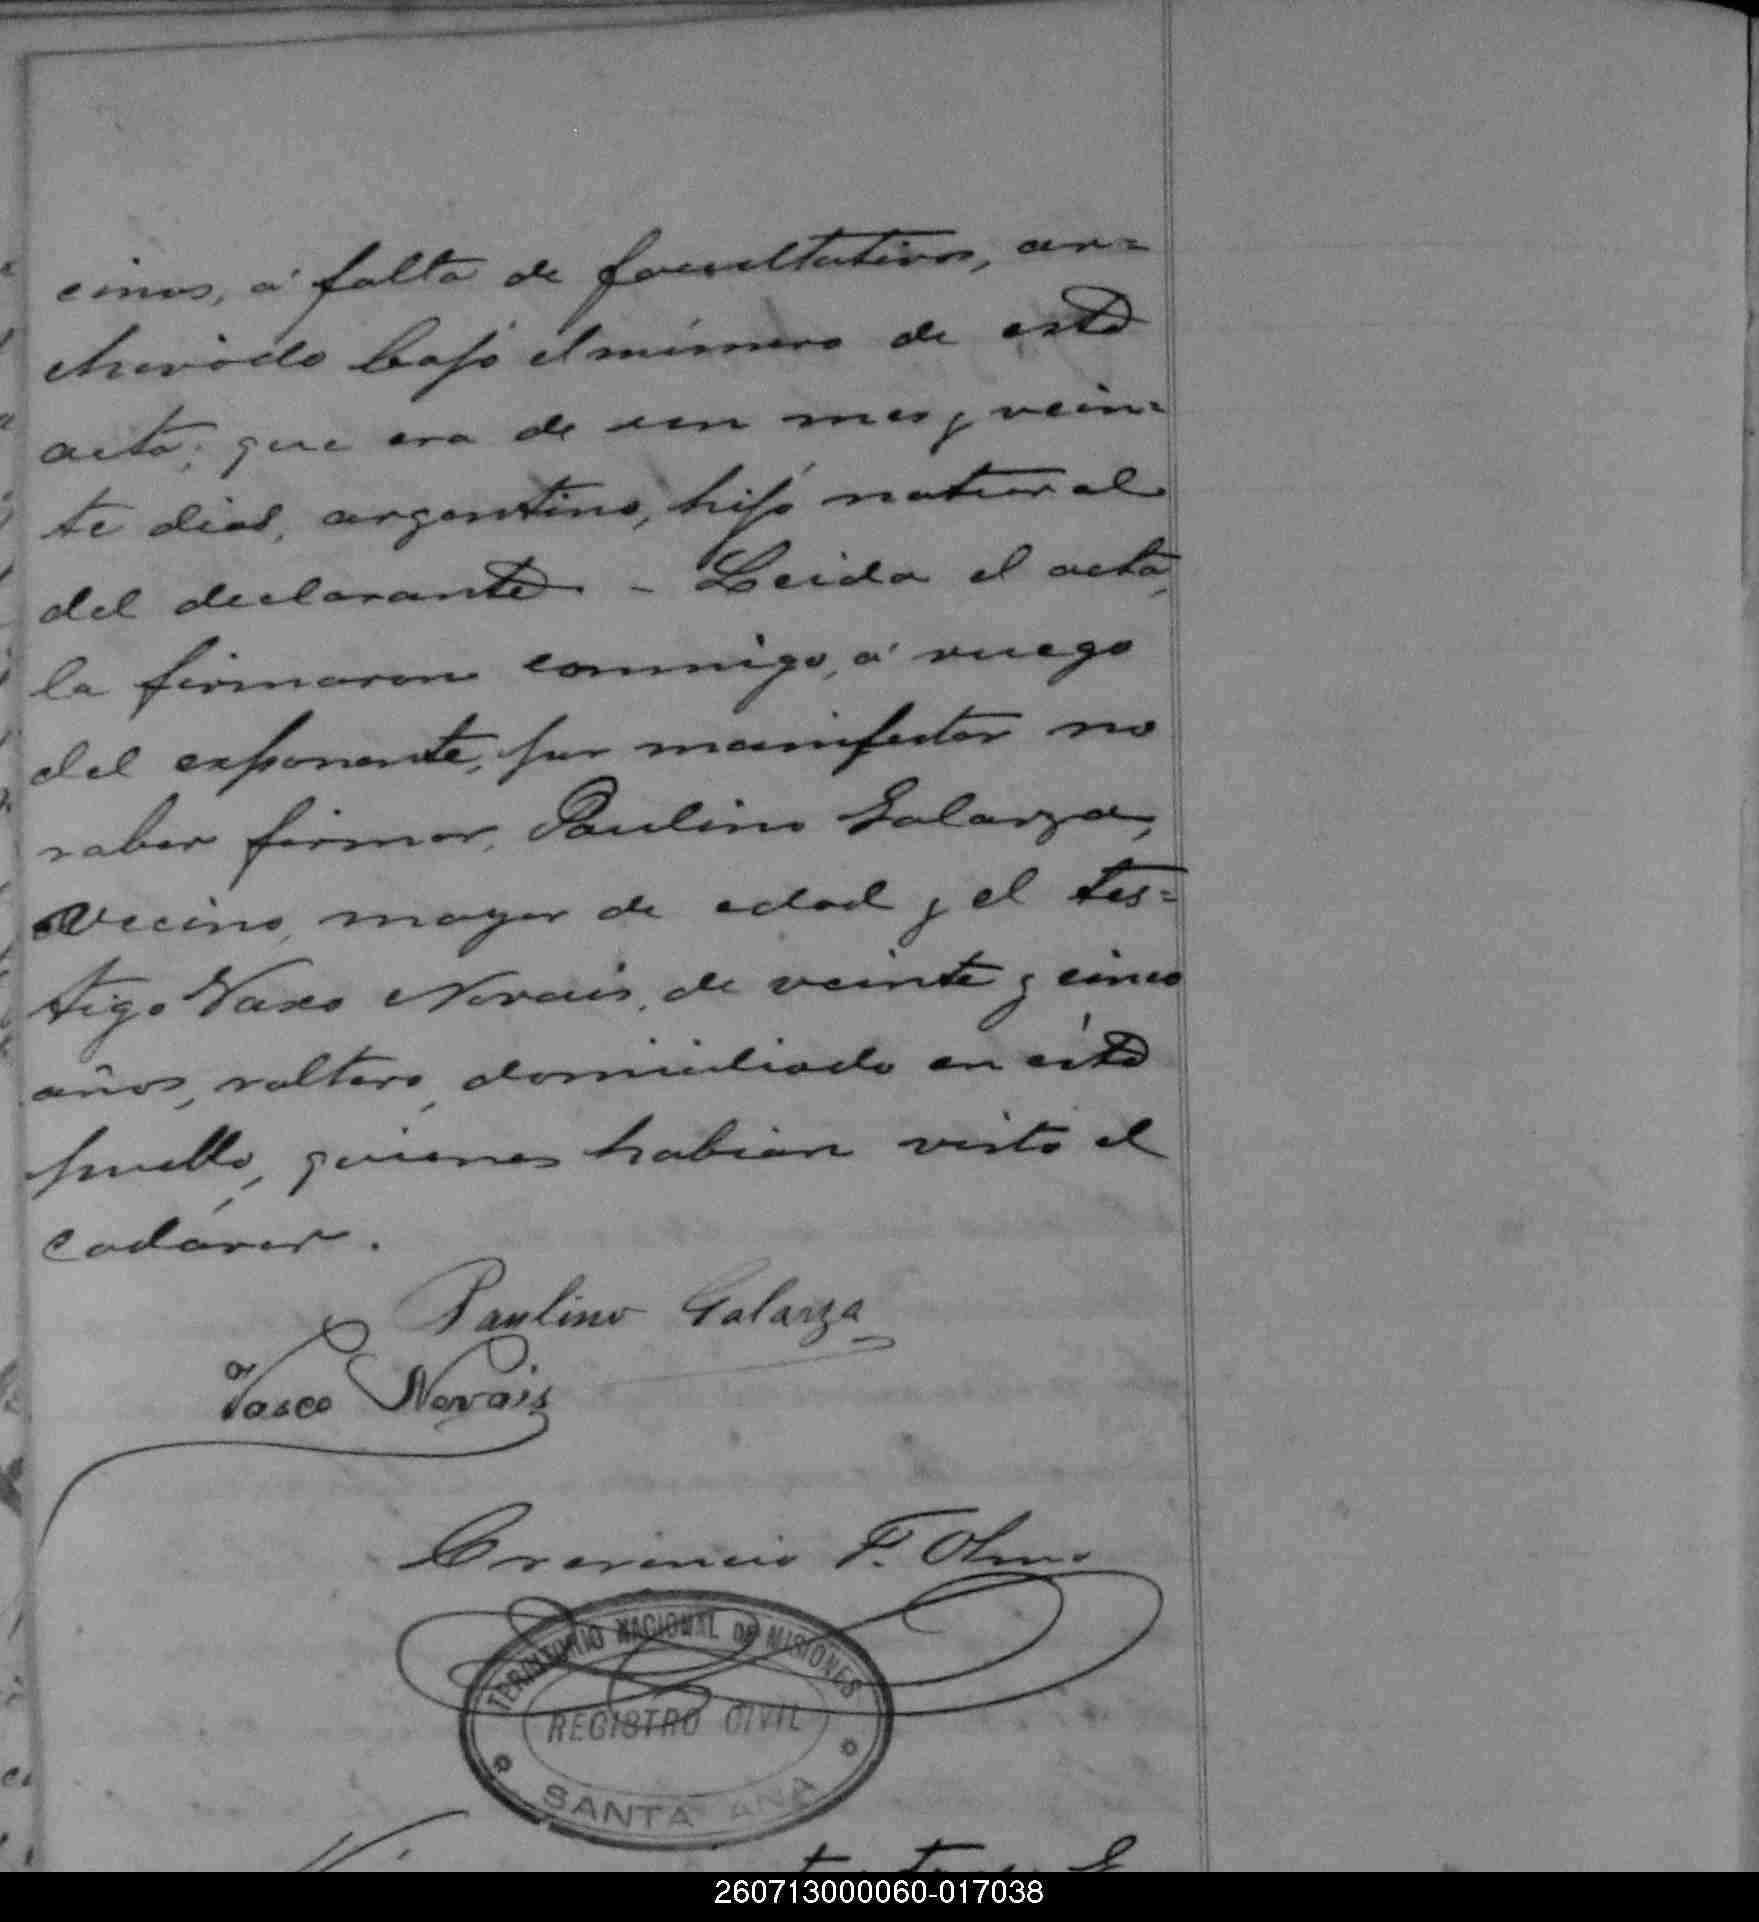 cinos, á falta de facultativos, ar=
chivado bajo el número de esta
acta; que era de un mes y vein=
te dias, argentino, hijo natural
del declarante - Leida el acta,
la firmaron conmigo, á ruego
del exponente, por manifestar no
saber firmar, Paulino Galarza,
vecino, mayor de edad y el tes=
tigo Vasco Novais, de veinte y cinco
años, soltero, domiciliado en éste
pueblo, quienes habian visto el
cadáver.
Paulino Galarza
Vasco Novais
F. Olmo
TERRITORIO NACIONAL DE MISIONES
REGISTRO CIVIL
SANTA ANA
260713000060-017038